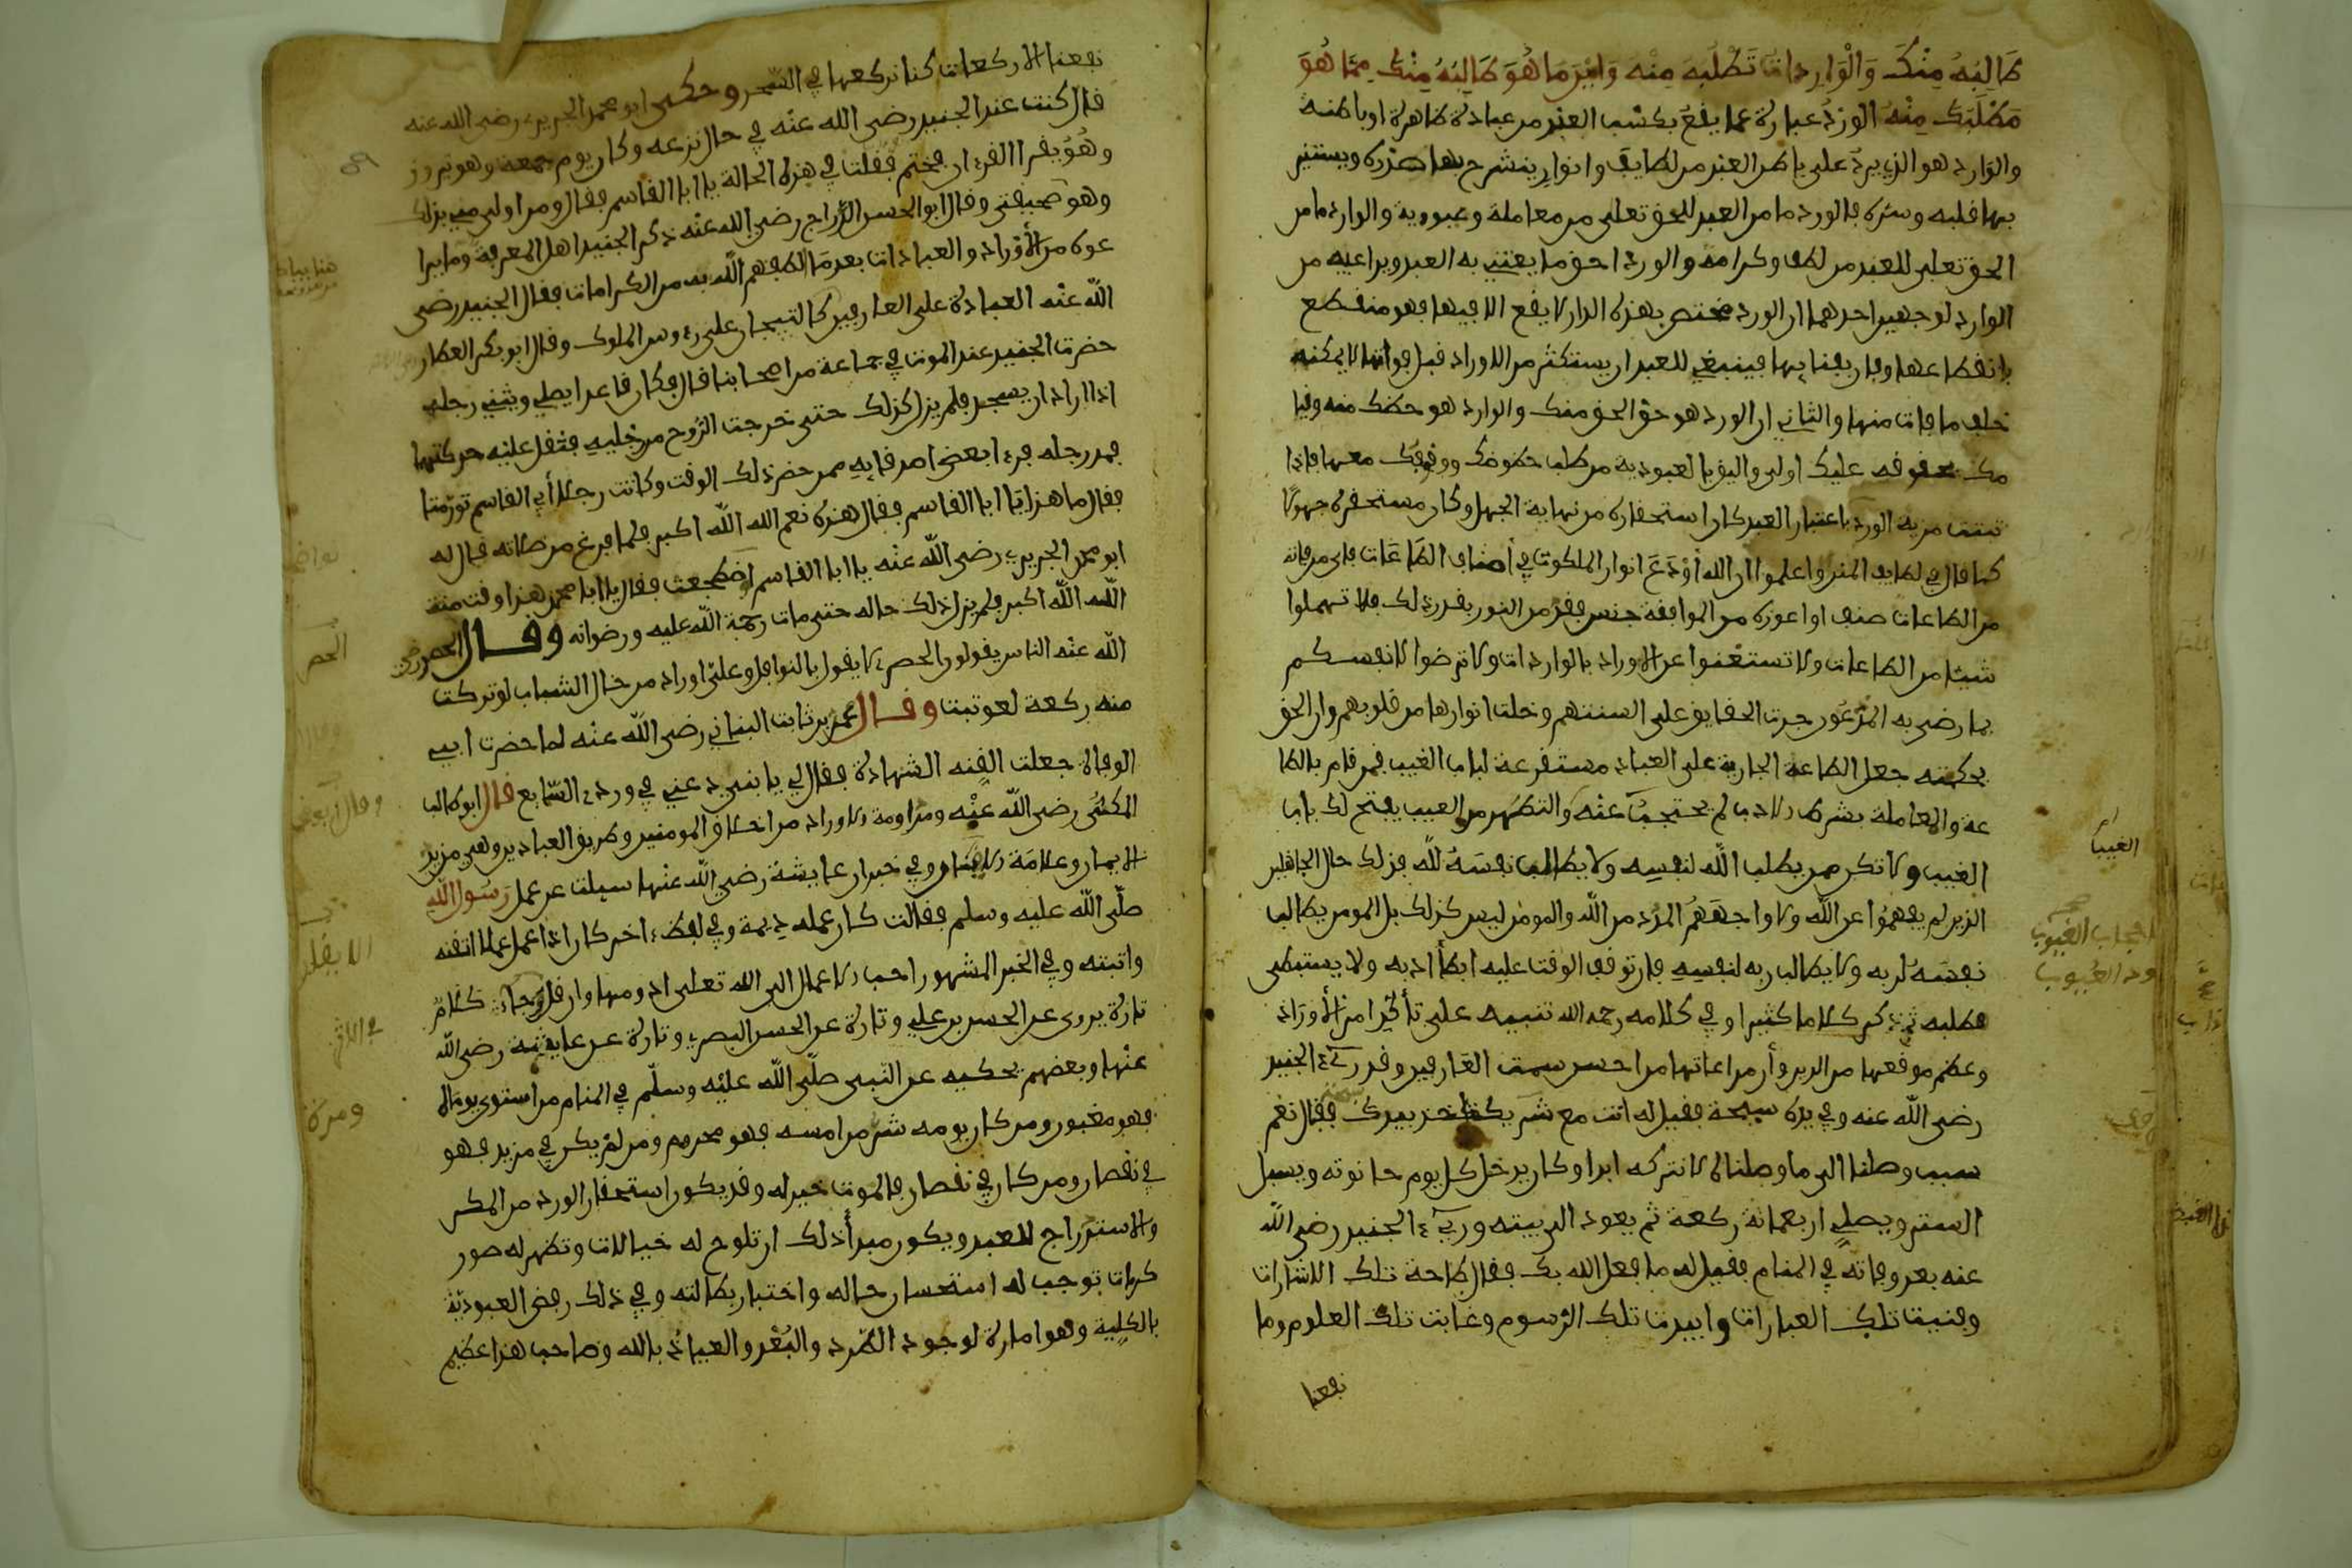 طَالِبُهُ مِنْكَ وَالْوَارِدَاتُ تَطْلُبُهُ مِنْهُ وَأَيْنَ مَا هُوَ طَالِبُهُ مِنْكَ مِمَّا هُوَ
مَطْلَبُكَ مِنْهُ الورد عبارة عما يقع بكسب العبد من عبادة ظاهرة او باطنة
والوارد هو الذي يرد على باطن العبد من لطايف وانوار ينشرح بها صدره ويستنير
بها قلبه وسره فالورد ما من العبد للحق تعلى من معاملة وعبودية والوارد ما من
الحق تعلى للعبد من لطف وكرامة والورد احق ما يعتني به العبد ويراعيه من
الوارد لوجهين احدهما ان الورد مختص بهذه الدار لا يقع الا فيها فهو منقطع
بانقطاعها وفان بفنايها فينبغي للعبد ان يستكثر من الاوراد قبل فواتها لا يمكنه
خلف ما فات منها والثاني ان الورد هو حق الحق منك والوارد هو حظك منه وقيا
مك بحقوقه عليك اولى واليق بالعبودية من طلب حظوظك ووقوفك معها فاذا
ثبتت مزية الورد باعتبار العبد كان استحقاره من نهاية الجهل وكان مستحقره جهولا
كما قال في لطايف المنن واعلموا ان الله أوْدَعَ انوار الملكوت في أصناف الطاعات فاي من فاته
من الطاعات صنف او اعوزه من الموافقة جنس فقد من النور بقدر ذلك فلا تهملوا
شيئا من الطاعات ولا تستغنوا عن الاوراد بالواردات ولا ترضوا لانفسكم
بما رضي به المدّعون جرت الحقايق على السنتهم وخلت انوارها من قلوبهم وان الحق
بحكمته جعل الطاعة الجارية على العباد مستقرعة لباب الغيب فمن قام بالطا
عة والمعاملة بشرط الادب لم يحتجب عنه والتطهر من العيب يفتح لك باب
الغيب ولا تكن ممن يطلب الله لنفسه ولا يطالب نفسه لله فذلك حال الجاهلين
الذين لم يفهموا عن الله ولا واجههم المدد من الله والمومن ليس كذلك بل المومن يطالب
نفسه لربه ولا يطالب ربه لنفسه فان توقف الوقت عليه ابطأ ادبه ولا يستبطى
مطلبه ثم ذكر كلاما كثيرا وفي كلامه رحمه الله تنبيه على تأكيد امر الأوراد
وعظم موقعها من الدين وأن مراعاتها من احسن سمت العارفين وقد رءي الجنيد
رضي الله عنه وفي يده سبحة فقيل له انت مع شرفك تاخذ بيدك فقال نعم
سبب وصلنا الى ما وصلنا لا نتركه ابدا وكان يدخل كل يوم حانوته ويسبل
الستر ويصلي اربعمائة ركعة ثم يعود الى بيته ورءي الجنيد رضي الله
عنه بعد وفاته في المنام فقيل له ما فعل الله بك فقال طاحت تلك الاشارات
وفنيت تلك العبارات وابيدت تلك الرسوم وغابت تلك العلوم وما
نفعنا
الغيب
نفعنا الا ركعات كنا نركعها في السحر وحكى ابو محمد الجريري رضي الله عنه
قال كنت عند الجنيد رضي الله عنه في حال نزعه وكان يوم جمعة وهو نيروز
وهو يقرا القرءان فختم فقلت في هذه الحالة يا ابا القاسم فقال ومن اولى مني بذلك
وهو صحيفتي وقال ابو الحسن الدراج رضي الله عنه ذكر الجنيد اهل المعرفة وما يرا
عونه من الأوراد والعبادات بعد ما الطفهم الله به من الكرامات فقال الجنيد رضي
الله عنه العبادة على العارفين كالتيجان على رءوس الملوك وقال ابو بكر العطار
حضرت الجنيد عند الموت في جماعة من اصحابنا قال فكان قاعدا يصلي ويثني رجله
اذا اراد ان يسجد فلم يزل كذلك حتى خرجت الروح من رجليه فثقل عليه حركتها
فمد رجله فرءا بعض اصدقايه ممن حضر ذلك الوقت وكانت رجلا أبي القاسم تورمتا
فقال ما هذا يا ابا القاسم فقال هذه نعم الله الله اكبر فلما فرغ من صلاته قال له
ابو محمد الجريري رضي الله عنه يا ابا القاسم اضطجعت فقال يا ابا محمد هذا وقت منة
الله الله اكبر فلم يزل ذلك حاله حتى مات رحمة الله عليه ورضوانه وقال الحصري رضي
الله عنه الناس يقولون الحصري لا يقول بالنوافل وعلي اوراد من حال الشباب لو تركت
منه ركعة لعوتبت وقال محمد بن ثابت البناني رضي الله عنه لما حضرت ابي
الوفاة جعلت القنه الشهادة فقال لي يا بني دعني في وردي السابع قال ابو طالب
المكي رضي الله عنه ومداومة الاوراد من اخلاق المومنين وطريق العابدين وهي مزيد
الايمان وعلامة الايقان وفي خبر ان عايشة رضي الله عنها سيلت عن عمل رسول الله
صلى الله عليه وسلم فقالت كان عمله ديمة وفي لفظ ءاخر كان اذا عمل عملا اتقنه
واثبته وفي الخبر المشهور احب الاعمال الى الله تعلى ادومها وان قل وجاء كلام
تارة يروى عن الحسن بن علي وتارة عن الحسن البصري وتارة عن عايشة رضي الله
عنها وبعضهم يحكيه عن النبي صلى الله عليه وسلم في المنام من استوى يوماه
فهو مغبون ومن كان يومه شر من امسه فهو محروم ومن لم يكن في مزيد فهو
في نقصان ومن كان في نقصان فالموت خير له وقد يكون استحقار الورد من المكر
والاستدراج للعبد ويكون مبدأ ذلك ان تلوح له خيالات وتظهر له صور
كرامات توجب له استحسان حاله واختيار بطالته وفي ذلك رفض العبودية
بالكلية وهو امارة لوجود الطرد والبُعْد والعياذ بالله وصاحب هذا عظيم
الحصر
ومرة